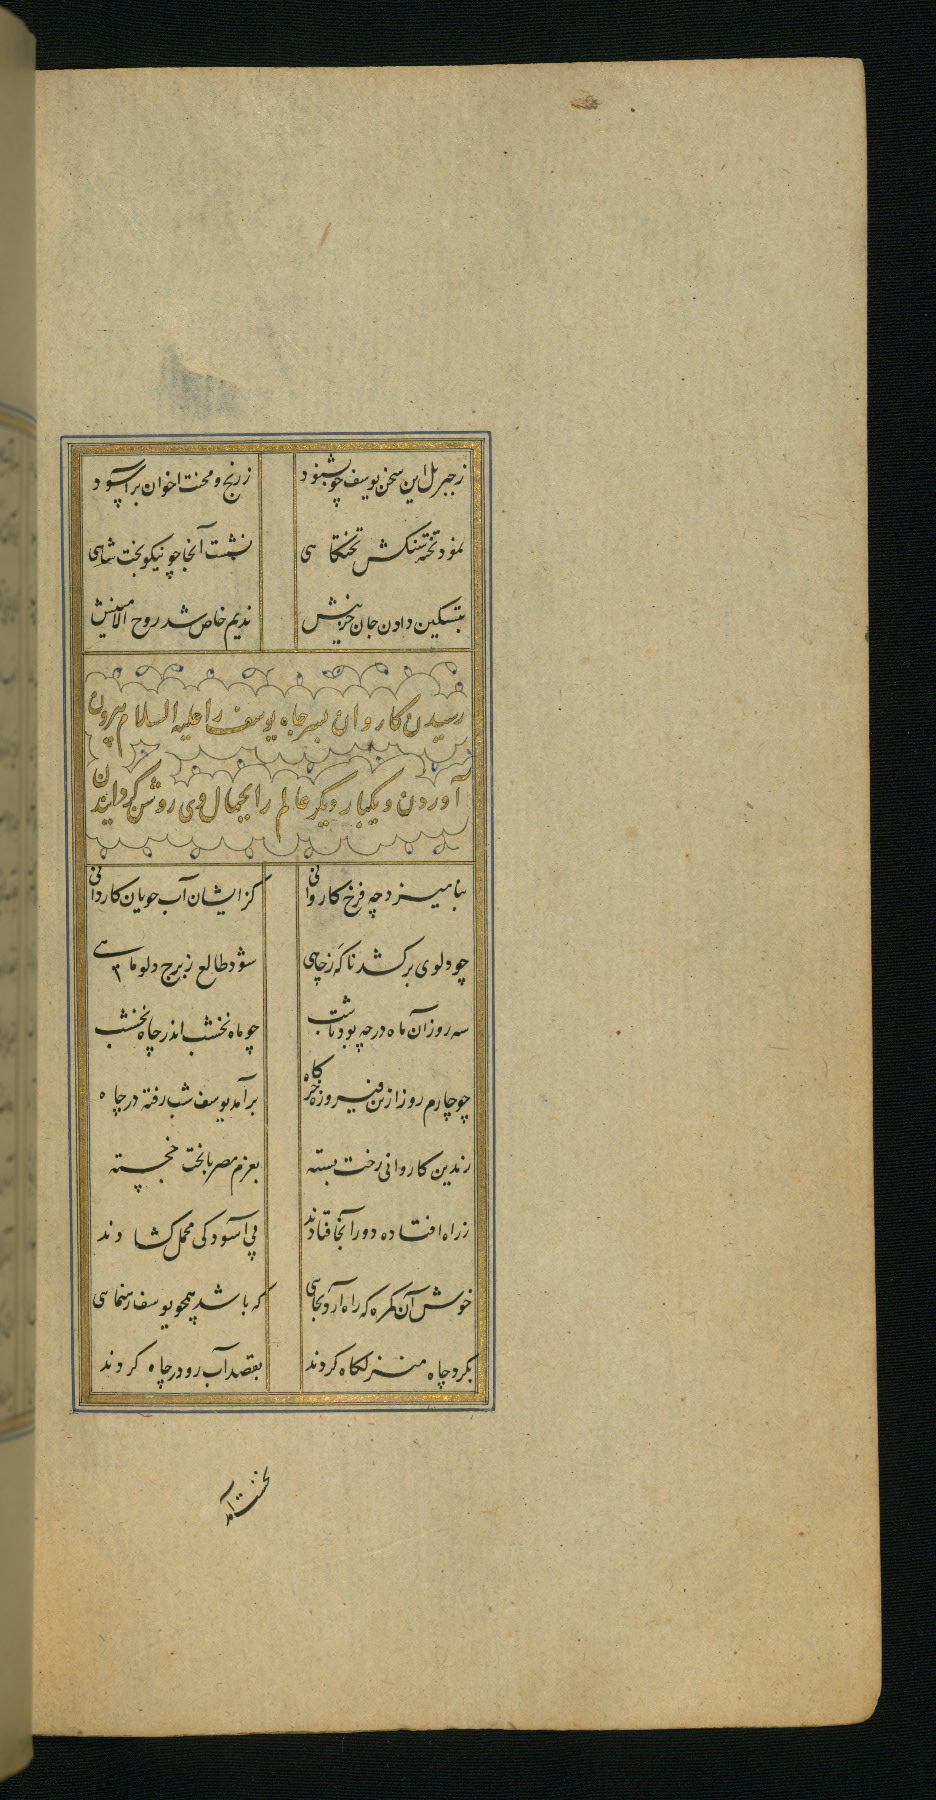 ز جبریل این سخن یوسف چو بشنود ز رنج و محنت اخوان برآسود
نمود تخته سنگش تختگاهی نشست آنجا چو نیکوبخت شاهی
بتسکین دادن جان حزینش ندیم خاص شد روح الامینش
رسیدن کاروان بسر چاه یوسف را علیه السلام بیرون
آوردن و یکبار دیگر عالم را بجمال وی روشن گردانیدن
بنامیزد چه فرخ کاروانی کز ایشان آب جویان کاردانی
چو دلوی برکشد ناگه ز چاهی شود طالع ز برج دلو ماهی
سه روز آن ماه در چه بود تا شب چو ماه نخشب اندر چاه نخشب
چو چارم روز ازین فیروزه خرگاه برآمد یوسف شب رفته در چاه
ز مدین کاروانی رخت بسته بعزم مصر با بخت خجسته
ز راه افتاده دور آنجا فتادند پی آسودگی محمل گشادند
خوش آن گمره که راه آرد بجایی که باشد همچو یوسف رهنمایی
بگرد چاه منزلگاه کردند بقصد آب رو در چاه کردند
نخست آمد